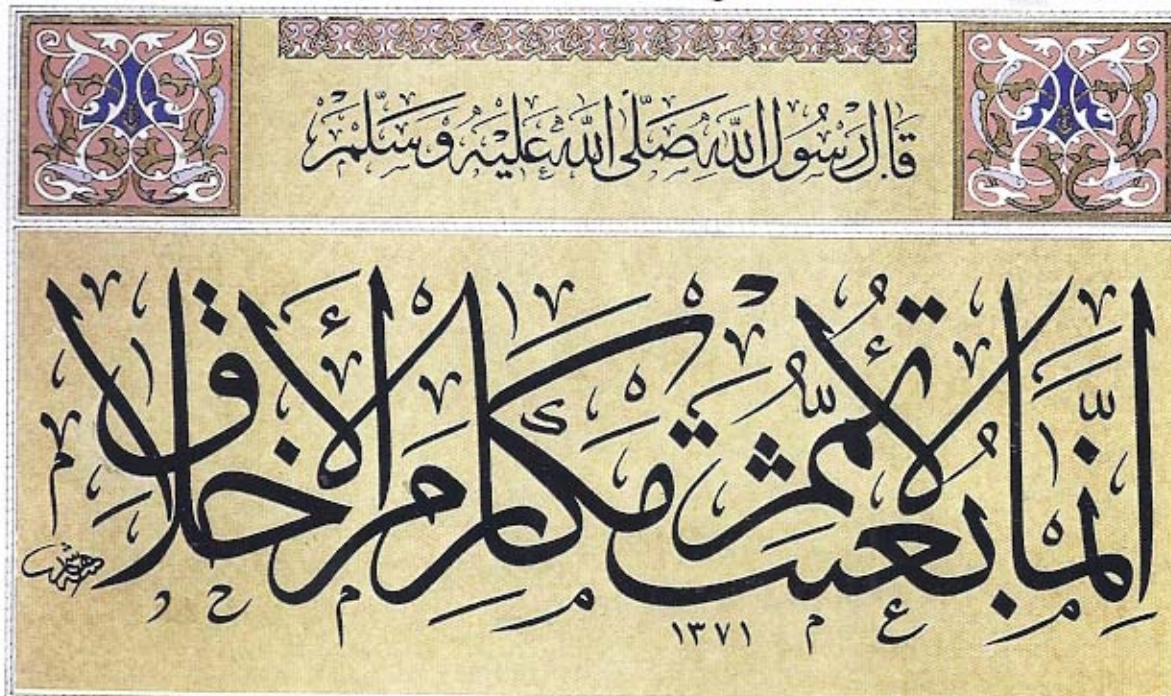 قَالَ رَسُولُ اللهِ صَلَّى اللهُ عَلَيْهِ وَسَلَّمَ
إِنَّمَا بُعِثْتُ لِأُتَمِّمَ مَكَارِمَ الْأَخْلَاقِ
١٣٧١
هاشم